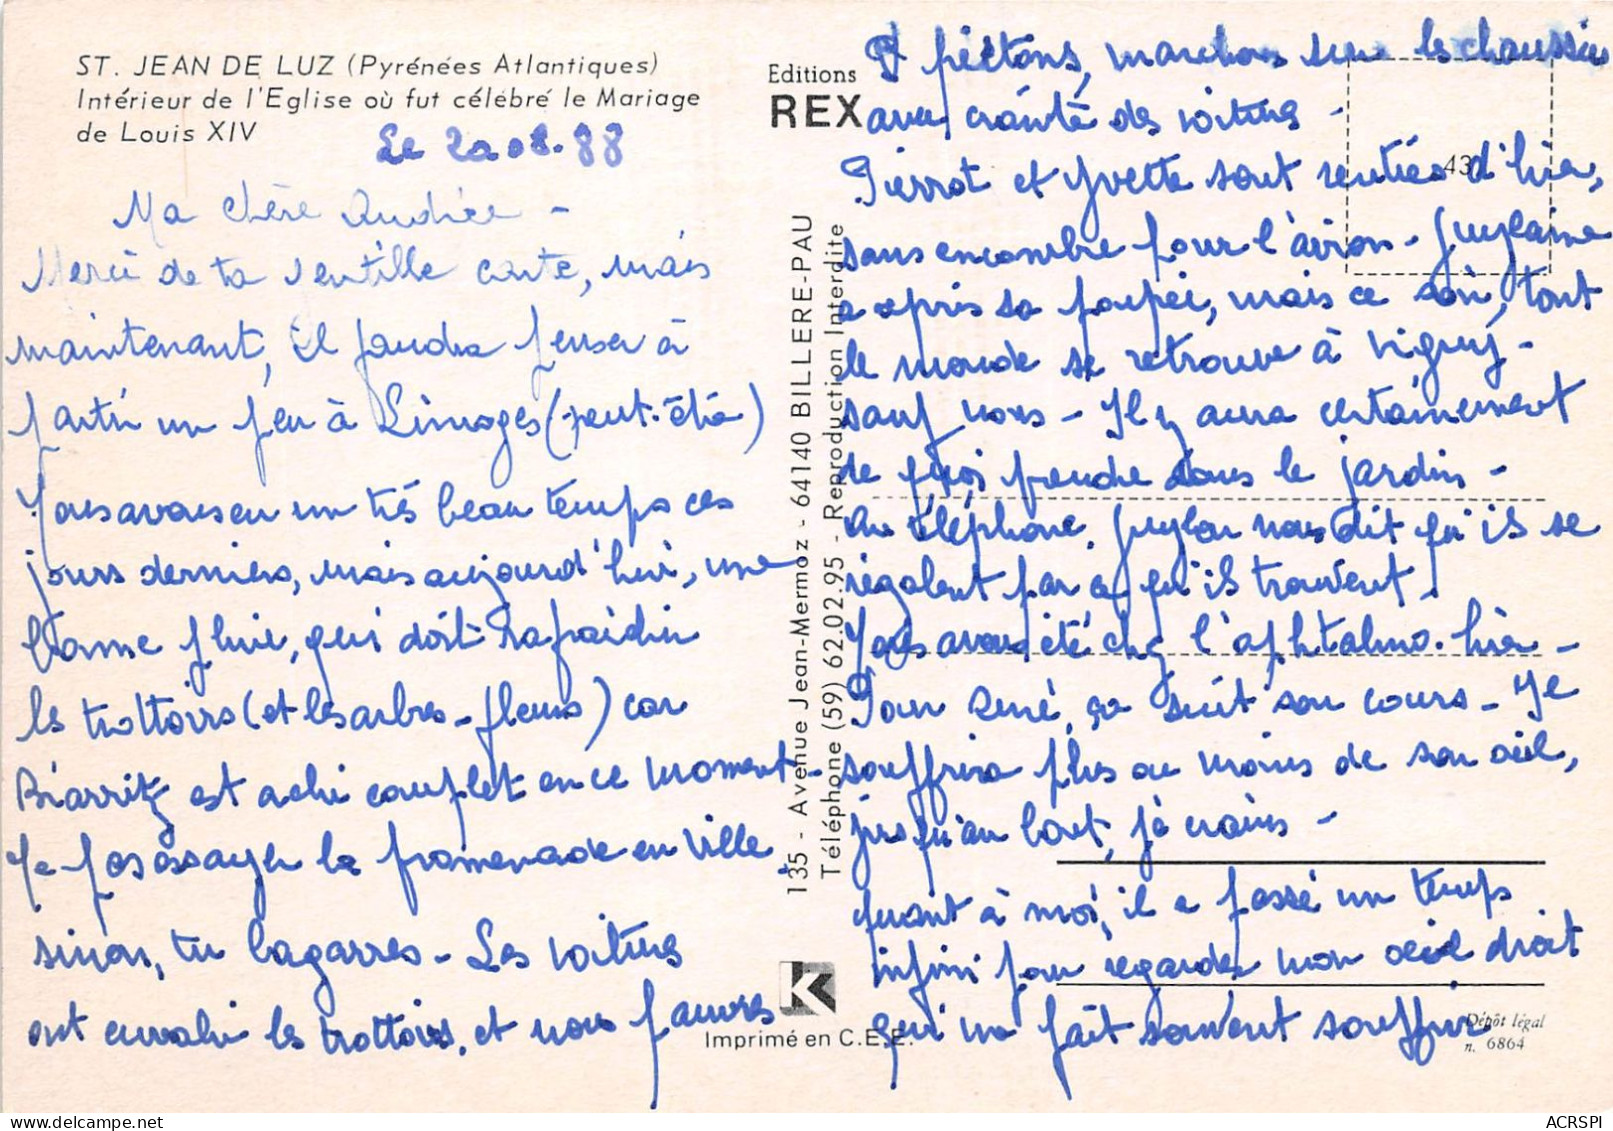 ST. JEAN DE LUZ (Pyrénées Atlantiques)
Intérieur de l'Eglise où fut célébré le Mariage
de Louis XIV
Le 20 08. 88
Ma chère Andrée -
Merci de ta gentille carte, mais
maintenant, il faudra penser à
partir un peu à Limoges (peut-être)
Nous avons eu un très beau temps ces
jours derniers, mais aujourd'hui, une
bonne pluie, qui doit rafraichir
les trottoirs (et les arbres - fleurs) car
Biarritz est archi complet en ce moment -
Ne pas essayer la promenade en ville,
sinon, tu bagarres - Les voitures
ont envahi les trottoirs, et nous pauvres
Editions
REX
135 - Avenue Jean-Mermoz - 64140 BILLERE-PAU
Téléphone (59) 62.02.95 - Reproduction Interdite
K
Imprimé en C.E.E.
piétons, marchons sur la chaussée
avec crainte des voitures -
43
Pierrot et Yvette sont rentrés d'hier,
sans encombre pour l'avion - Guylaine
a repris sa poupée, mais ce soir, tout
le monde se retrouve à Vigny -
sauf nous - Il y aura certainement
de quoi prendre dans le jardin -
Au téléphone, nous dit qu'ils se
régalent par ce qu'ils trouvent.
Nous avons été chez l'ophtalmo. hier -
Pour René, ça suit son cours - Il
souffrira plus ou moins de son oeil,
jusqu'au bout, je crains -
quant à moi, il a passé un temps
infini pour regarder mon oeil droit
qui me fait souvent souffrir.
Dépôt légal
n. 6864
ACRSPI